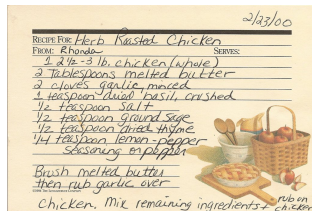 2/23/00
RECIPE FOR: Herb Roasted Chicken
FROM: Rhonda SERVES:
1 2½-3 lb. chicken (whole)
2 Tablespoons melted butter
2 cloves garlic, minced
1 teaspoon dried basil, crushed
½ teaspoon salt
½ teaspoon ground sage
½ teaspoon dried thyme
¼ teaspoon lemon-pepper
seasoning or pepper
Brush melted butter
then rub garlic over
chicken. Mix remaining ingredients + rub on
chicken